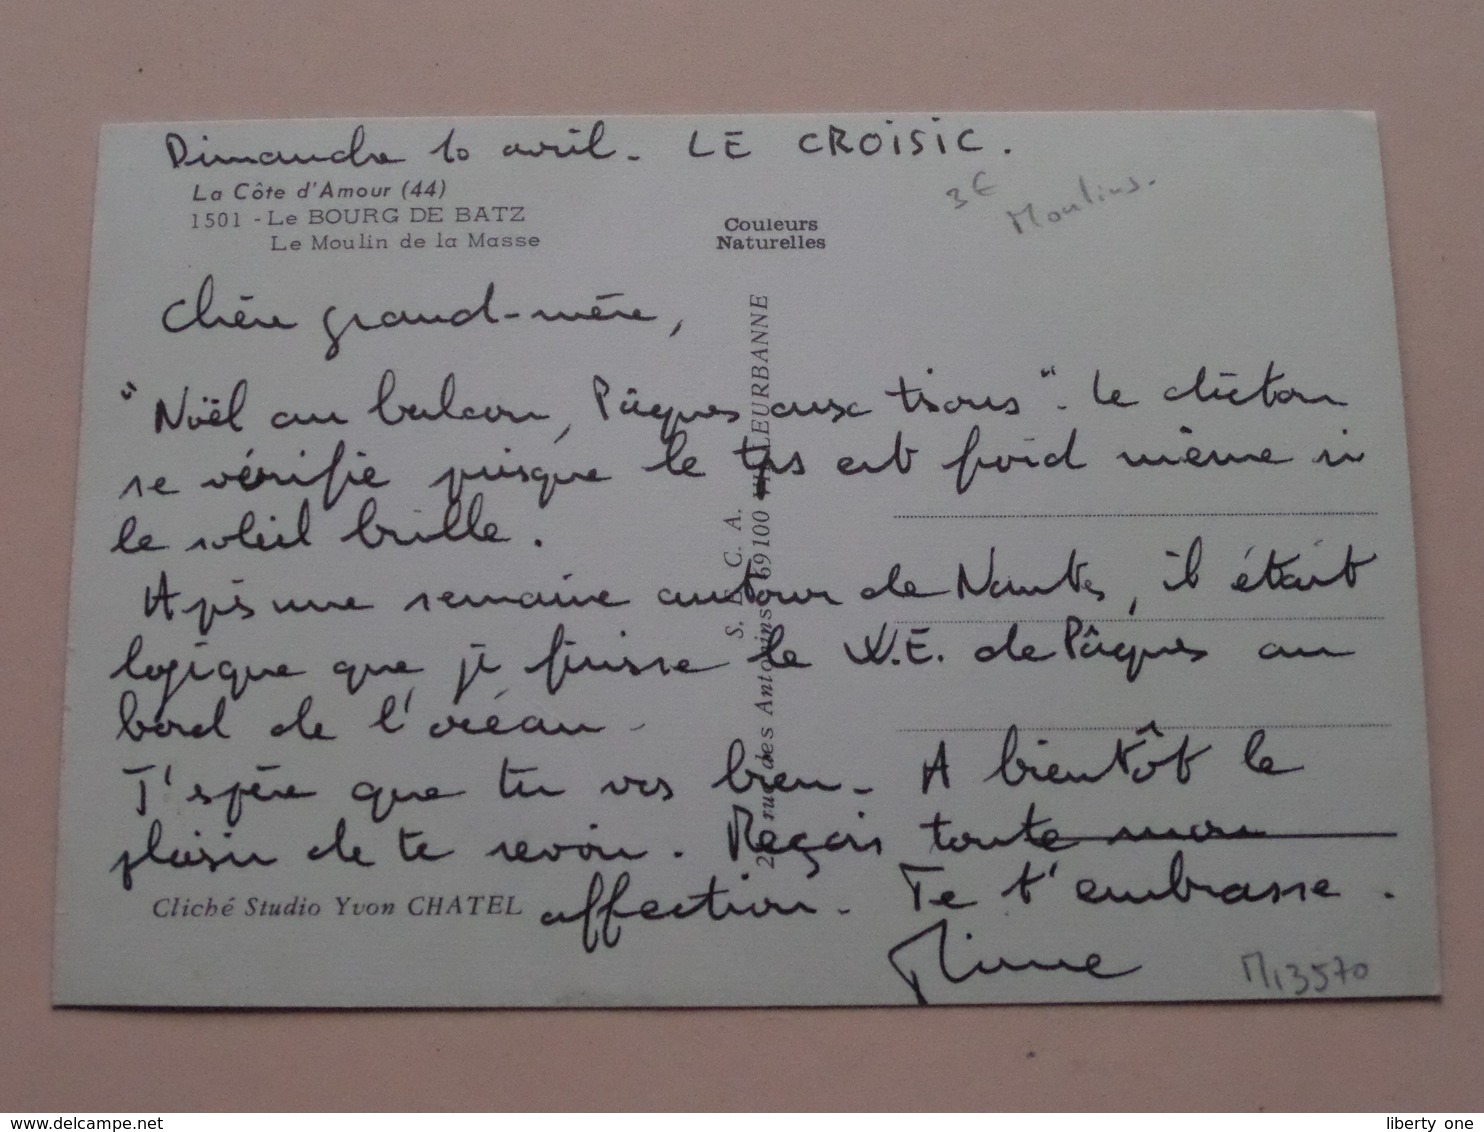 Dimanche 10 avril. LE CROISIC.
La Côte d'Amour (44)
1501 - Le BOURG DE BATZ
Le Moulin de la Masse
Couleurs
Naturelles
3€
Moulins.
Chère grand-mère,
"Noël au balcon, Pâques aux tisons". Le dicton
se vérifie puisque le tps est froid même si
le soleil brille.
Aprs une semaine autour de Nantes, il était
logique que je finisse le W.E. de Pâques au
bord de l'océan.
J'espère que tu vas bien. A bientôt le
plaisir de te revoir. Reçois toute mon
affection. Je t'embrasse.
Cliché Studio Yvon CHATEL
M13570
S. C. A.
rue des Antonins 69100 VILLEURBANNE
www.delcampe.net
liberty one